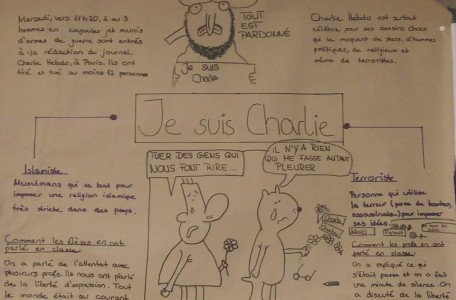 Mercredi, vers 11h20, 2 ou 3
hommes en cagoules et munis
d'armes de guerre sont entrés
à la rédaction du journal
Charlie Hebdo, à Paris. Ils ont
tiré et tué au moins 12 personne
TOUT
EST
PARDONNÉ
Je suis
Charlie
Charlie Hebdo est surtout
célèbre pour ses dessins chocs
qui se moquent de stars, d'hommes
politiques, de religieux et
même de terroristes.
Je suis Charlie
Islamiste
Musulmans qui se bat pour
imposer une religion islamique
très stricte dans des pays.
TUER DES GENS QUI
NOUS FONT RIRE...
IL N'Y A RIEN
QUI ME FASSE AUTANT
PLEURER
Terroriste
Personne qui utilise
la terreur (pose de bombes,
assassinats...) pour imposer
ses idées.
Charlie
Comment les élèves en ont
parlé en classe
On a parlé de l'attentat avec
plusieurs profs. Ils nous ont parlé
de la liberté d'expression. Tout
le monde était au courant
Comment les profs en ont
parlé en classe
On a expliqué ce qui
s'était passé et on a fait
une minute de silence. On
a discuté de la liberté